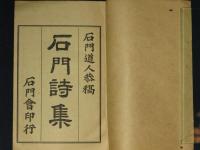 石門道人恭稿
石門詩集
石門會印行